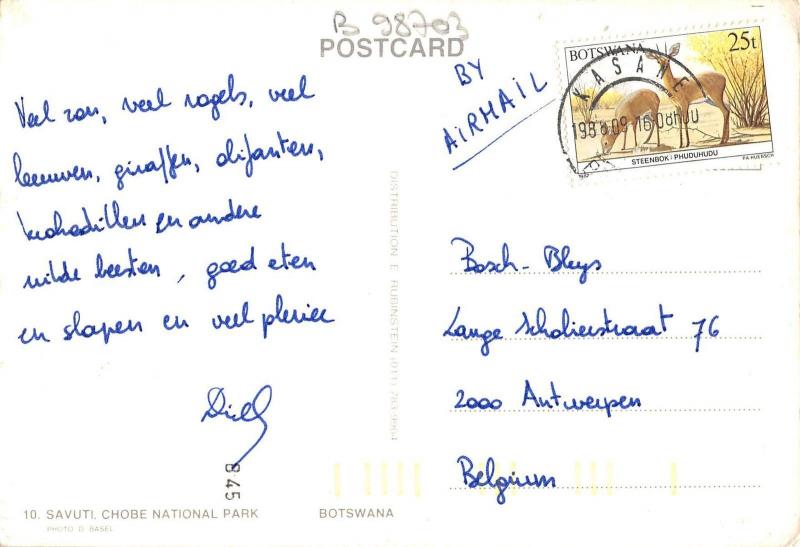 B 98703
POSTCARD
BY
AIRMAIL
BOTSWANA 25t
KASANE
1988 09 16 08H00
STEENBOK : PHUDUHUDU
P.A. HUEBSCH
Veel zon, veel vogels, veel
leeuwen, giraffen, olifanten,
krokodillen en andere
wilde beesten, goed eten
en slapen en veel plezier
845
10. SAVUTI, CHOBE NATIONAL PARK
PHOTO D. BASEL
BOTSWANA
DISTRIBUTION E. RUBINSTEIN (011) 783-9664
Bosch-Bleys
Lange Scholierstraat 76
2000 Antwerpen
Belgium